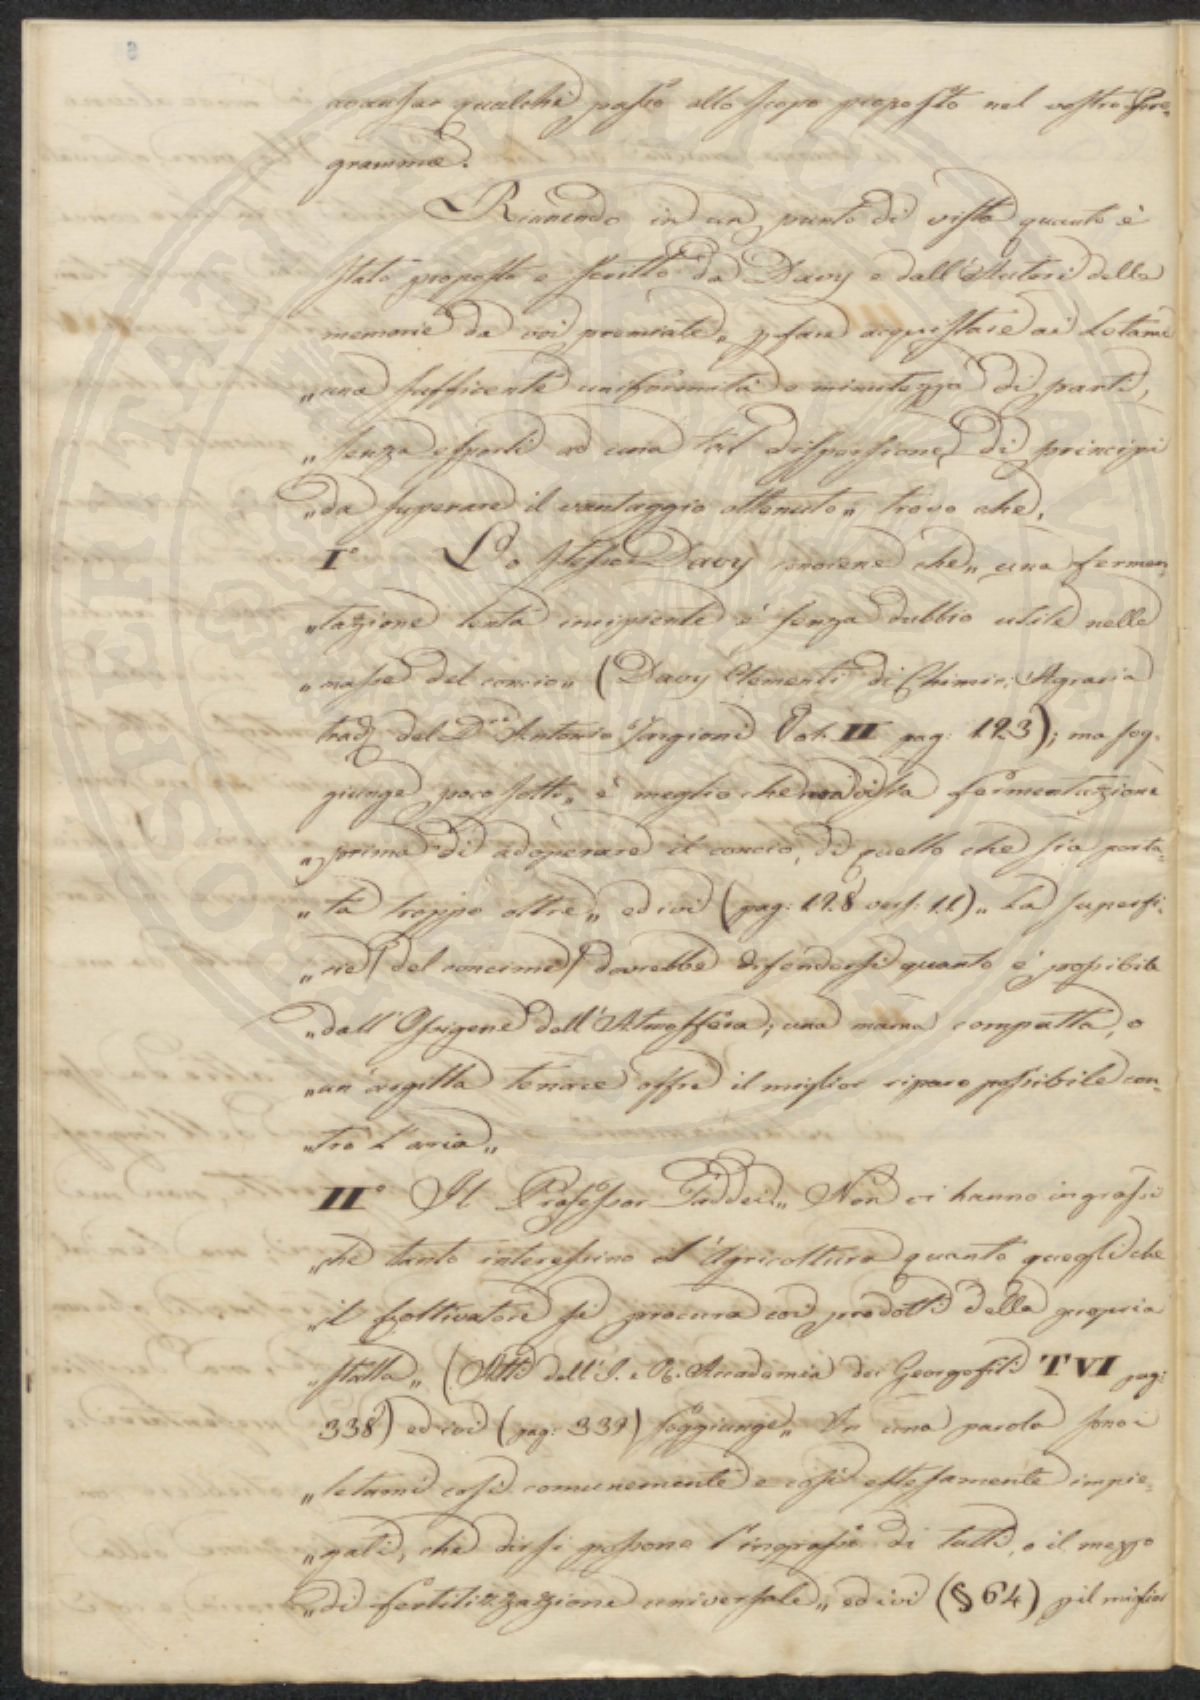 avansar qualche passo allo scopo proposto nel vostro Pro-
gramma.
Riunendo in un punto di vista quanto è
stato proposto e scritto da Davy e dall'Autori delle
memorie da voi premiate, p fare acquistare ai Letami
„una sufficente uniformità e minutezza di parti,
„senza esporli ad una tal dispersione di principi
„da superare il vantaggio ottenuto„ trovo che,
I° Lo stesso Davy conviene che„ una fermen-
„tazione lenta incipiente è senza dubbio utile nelle
„masse del concio„ (Davy Elementi di Chimic: Agraria
trad del Dre Antonio Targioni Vol. II pag: 193); ma sog-
giunge poco sotto„ è meglio che non vi sia fermentazione
„prima di adoperare il concio, di quello che sia porta-
„ta troppo oltre„ ed ivi (pag: 198 vers: 11)„ La superfi-
„cie (del concime) dovrebbe difendersi quanto è possibile
„dall'Ossigene dall'Atmosfera; una marna compatta, o
„un'argilla tenace offre il miglior riparo possibile con-
„tro l'aria„
II° Il Professor Taddei„ Non vi hanno ingrassi
„che tanto interessino l'Agricoltura quanto quegli che
„il Coltivatore si procura coi prodotti della propria
„stalla„ (Atti dell'I. e R. Accademia dei Georgofili T VI pag:
338) ed ivi (pag: 339) soggiunge„ In una parola sono i
„letami così comunemente e così estesamente impie-
„gati, che dirsi possono l'ingrasso di tutti, e il mezzo
„di fertilizzazione universale„ ed ivi (§ 64) p il miglior